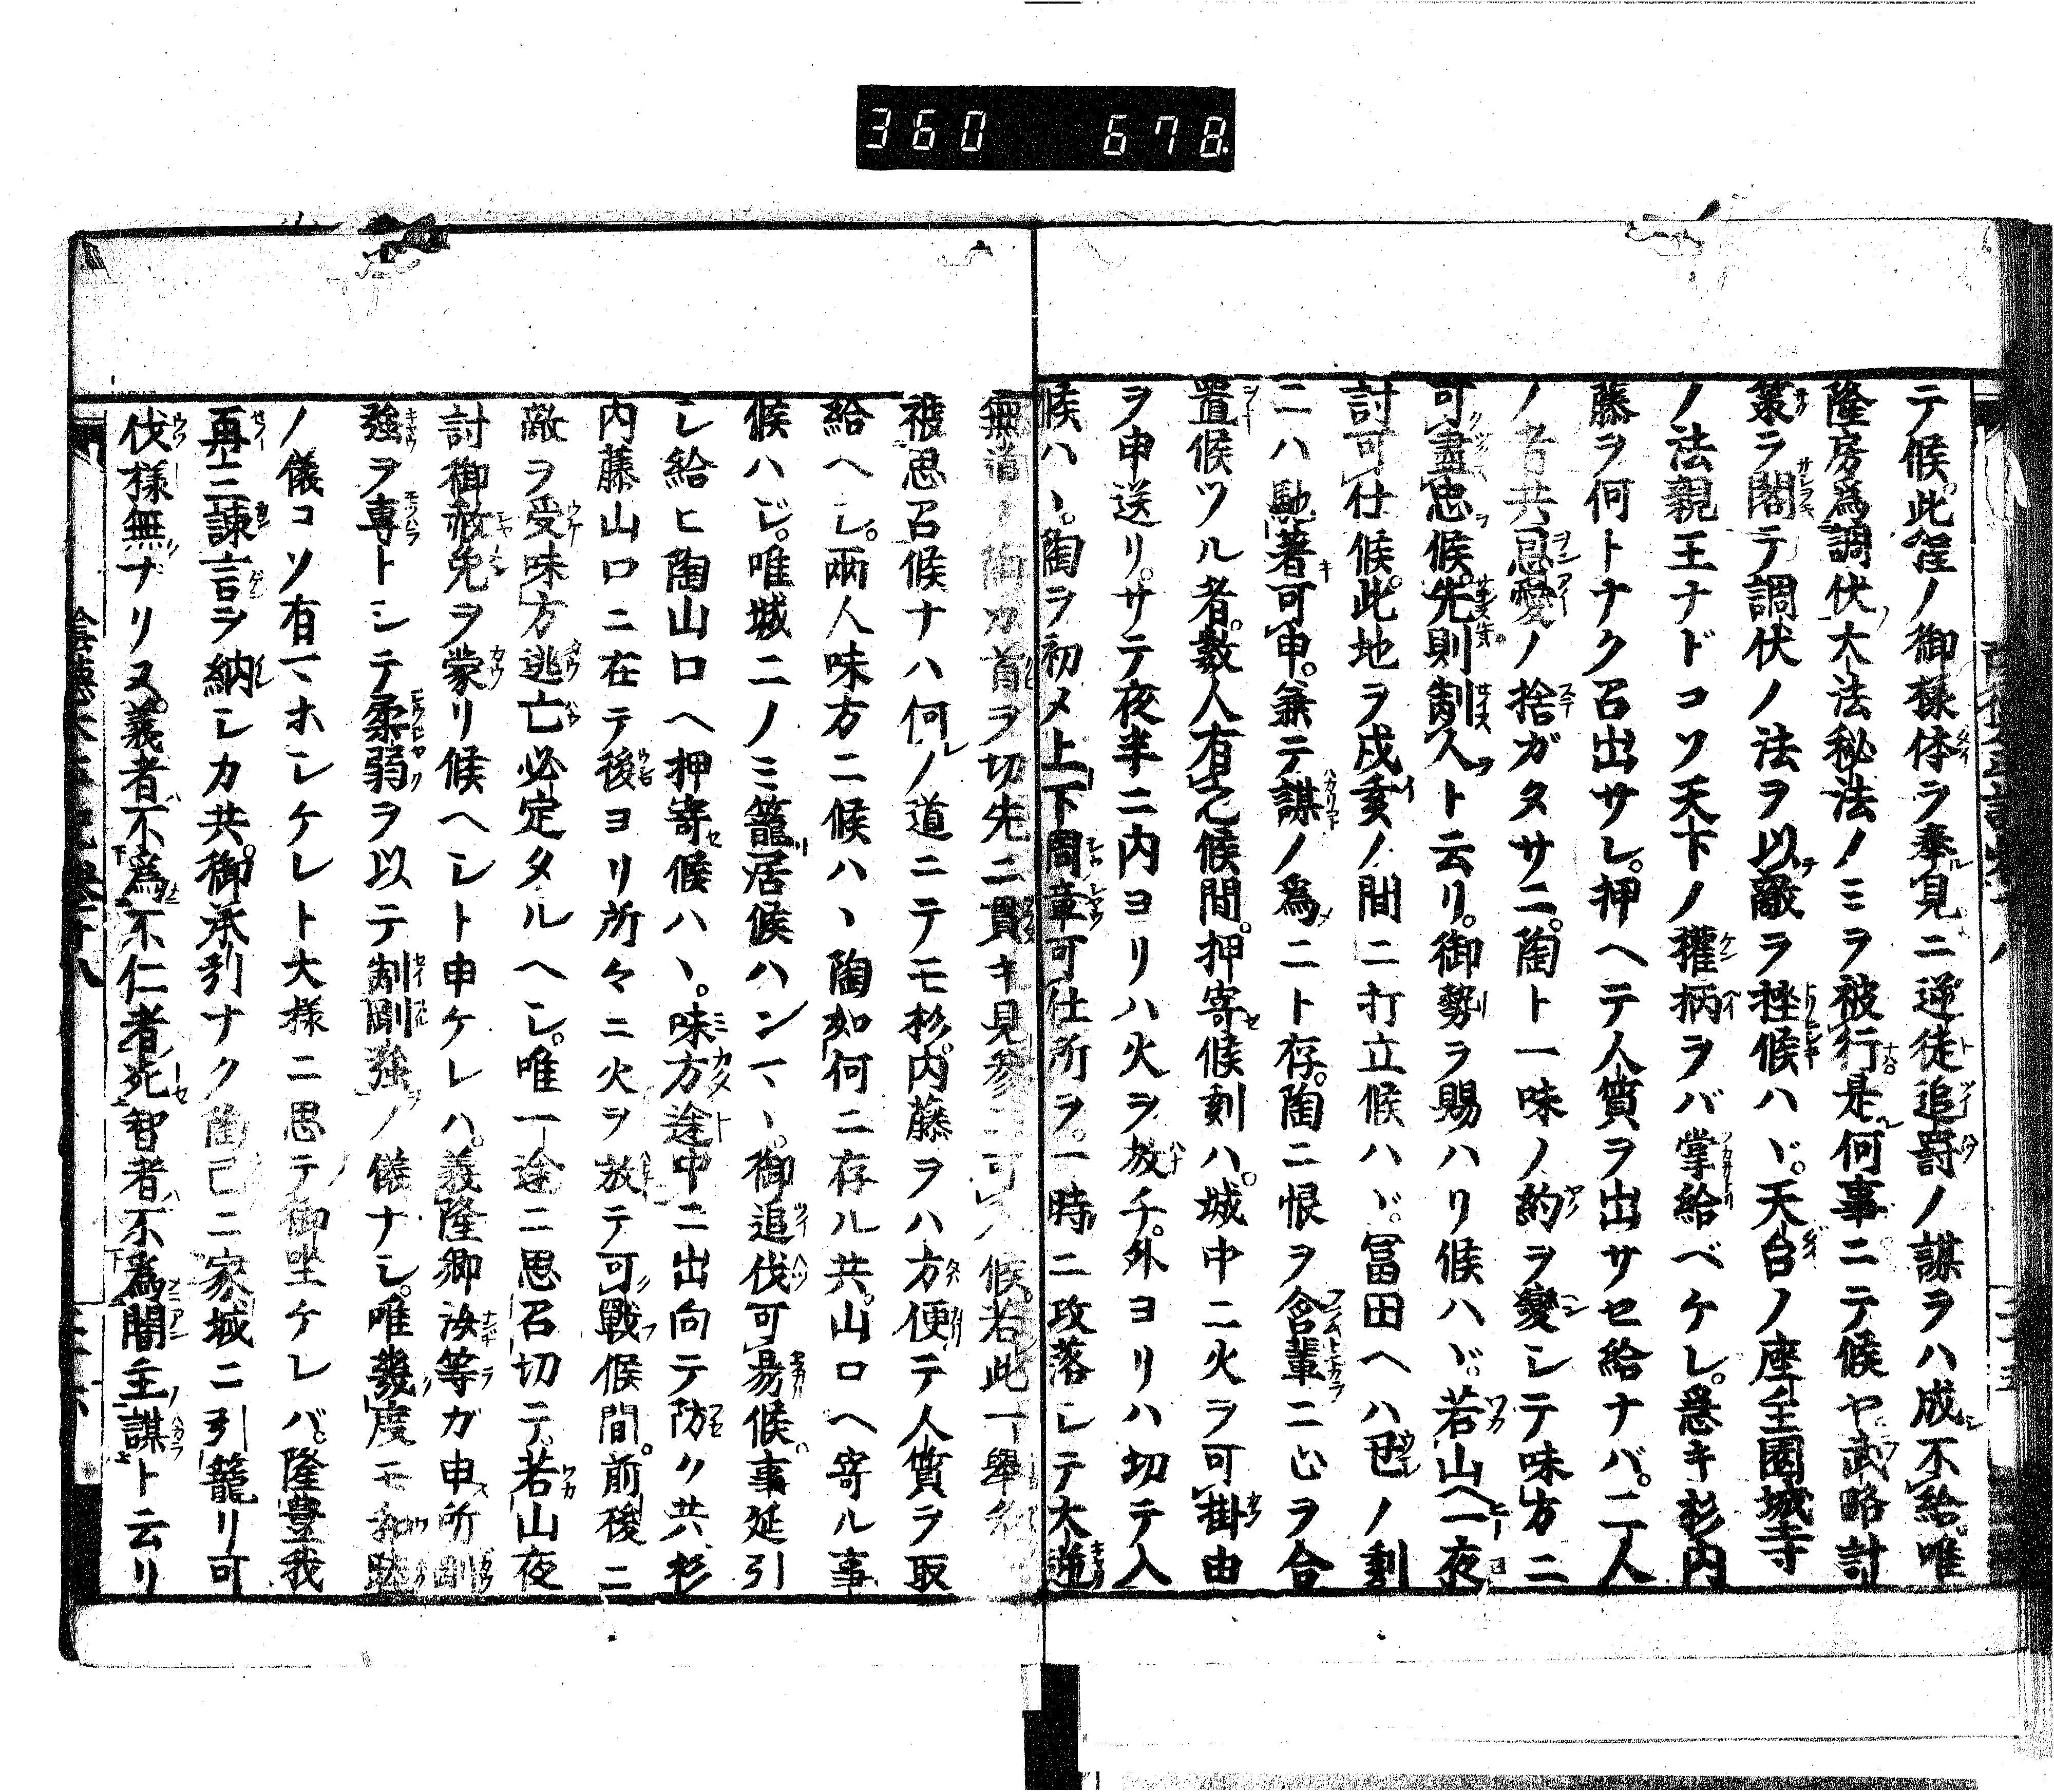 360 678
テ候此程ノ御樣体ヲ奉見ニ逆徒追罸ノ謀ヲハ成不給唯
隆房爲調伏大法秘法ノミヲ被行是何事ニテ候ヤ武略討
策ヲ閣テ調伏ノ法ヲ以敵ヲ挫候ハヾ天台ノ座主園城寺
ノ法親王ナドコソ天下ノ權柄ヲバ掌給ベケレ悪キ杉内
藤ヲ何トナク召出サレ押ヘテ人質ヲ出サセ給ナバ二人
ノ者共恩愛ノ捨ガタサニ陶ト一味ノ約ヲ變シテ味方ニ
可盡忠候先則制人ト云リ御勢ヲ賜ハリ候ハヾ若山ヘ一夜
討可仕候此地ヲ戌亥ノ間ニ打立候ハヾ冨田ヘハ丑ノ刻
ニハ馳著可申兼テ謀ノ爲ニト存陶ニ恨ヲ含輩ニ心ヲ合
置候ツル者數人有之候間押寄候刻ハ城中ニ火ヲ可掛由
ヲ申送リサテ夜半ニ内ヨリハ火ヲ放チ外ヨリハ切テ入
候ハヽ陶ヲ初メ上下周章可仕所ヲ一時ニ攻落シテ大逆
無道ノ陶カ首ヲ切先ニ貫キ見参ニ可入候若此一舉
被思召候ナハ何ノ道ニテモ杉内藤ヲハ方便テ人質ヲ取
給ヘシ兩人味方ニ候ハヽ陶如何ニ存ル共山口ヘ寄ル事
候ハジ唯城ニノミ籠居候ハンマヽ御追伐可易候事延引
シ給ヒ陶山口ヘ押寄候ハヽ味方途中ニ出向テ防ク共杉
内藤山口ニ在テ後ヨリ所々ニ火ヲ放テ可戰候間前後ニ
敵ヲ受味方逃亡必定タルヘシ唯一途ニ思召切テ若山夜
討御赦免ヲ蒙リ候ヘシト申ケレハ義隆卿汝等ガ申所剛
強ヲ專トシテ柔弱ヲ以テ制剛強ノ儀ナシ唯幾度モ和睦
ノ儀コソ有マホシケレト大樣ニ思テ御坐ケレバ隆豊我
再三諫言ヲ納シカ共御承引ナク陶己ニ家城ニ引籠リ可
伐樣無ナリヌ義者不爲不仁者死智者不爲闇主謀ト云リ